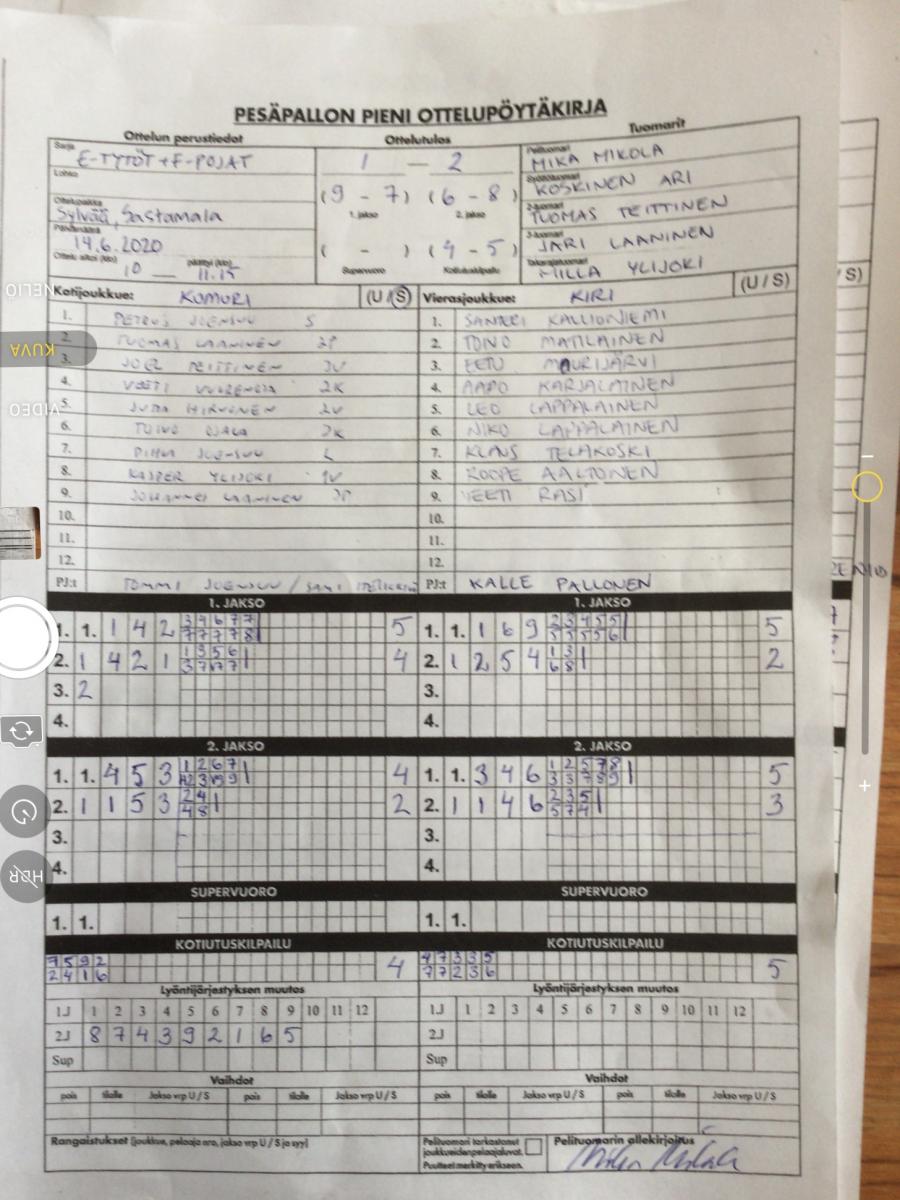 PESÄPALLON PIENI OTTELUPÖYTÄKIRJA
Ottelun perustiedot
Ottelutulos
Tuomarit
Sarja
E-TYTÖT + F-POJAT
Lohko
Ottelupaikka
Sylvää, Sastamala
Päivämäärä
14.6.2020
Ottelu alkoi (klo) päättyi (klo)
10 — 11.15
1 — 2
(9 - 7) (6 - 8)
1. jakso 2. jakso
( - ) (4 - 5)
Supervuoro Kotiutuskilpailu
Pelituomari
MIKA MIKOLA
Syöttötuomari
KOSKINEN ARI
2-tuomari
TUOMAS TEITTINEN
3-tuomari
JARI LAANINEN
Takarajatuomari
MILLA YLIJOKI
Kotijoukkue: KOMURI (U / S)
1. PETRUS JOENSUU S
2. TUOMAS LAANINEN 2P
3. JOEL TEITTINEN 3V
4. VEETI 2K
5. JUHA HIRVONEN 2V
6. TOIVO OJALA 3K
7. JOENSUU L
8. KASPER YLIJOKI 1V
9. JOHANNES LAANINEN 3P
10.
11.
12.
PJ:t TOMMI JOENSUU / SAMI
Vierasjoukkue: KIRI (U / S)
1. SANTERI KALLIONIEMI
2. TOMO MATILAINEN
3. EETU MAURIJÄRVI
4. AAPO KARJALAINEN
5. LEO LAPPALAINEN
6. NIKO LAPPALAINEN
7. KLAUS TELAKOSKI
8. ROOPE AALTONEN
9. VEETI RASI
10.
11.
12.
PJ:t KALLE PALLONEN
1. JAKSO
1. 1. 1 4 2 3 4 6 7 7 5
7 7 7 7 8
2. 1 4 2 1 1 3 5 6 4
3 7 7 7
3. 2
4.
1. JAKSO
1. 1. 1 6 9 2 3 4 5 5 5
5 5 5 5 6
2. 1 2 5 4 1 3 2
6 8
3.
4.
2. JAKSO
1. 1. 4 5 3 1 2 6 7 4
2. 1 1 5 3 2 4 2
4 8
3.
4.
2. JAKSO
1. 1. 3 4 6 1 2 5 7 8 5
3 3 7 8 9
2. 1 1 4 6 2 3 5 3
5 7 4
3.
4.
SUPERVUORO
1. 1.
SUPERVUORO
1. 1.
KOTIUTUSKILPAILU
7 5 9 2 4
2 4 1 6
KOTIUTUSKILPAILU
4 7 3 3 5 5
7 7 2 3 6
Lyöntijärjestyksen muutos
1J 1 2 3 4 5 6 7 8 9 10 11 12
2J 8 7 4 3 9 2 1 6 5
Sup
Lyöntijärjestyksen muutos
1J 1 2 3 4 5 6 7 8 9 10 11 12
2J
Sup
Vaihdot
pois tilalle Jakso vrp U / S pois tilalle Jakso vrp U / S
Vaihdot
pois tilalle Jakso vrp U / S pois tilalle Jakso vrp U / S
Rangaistukset (joukkue, pelaaja nro, jakso vrp U / S ja syy)
Pelituomari tarkastanut
joukkueiden pelaajaluvat.
Puutteet merkitty erikseen.
Pelituomarin allekirjoitus
Mika Mikola
NELIÖ
KUVA
VIDEO
HDR
/ S)